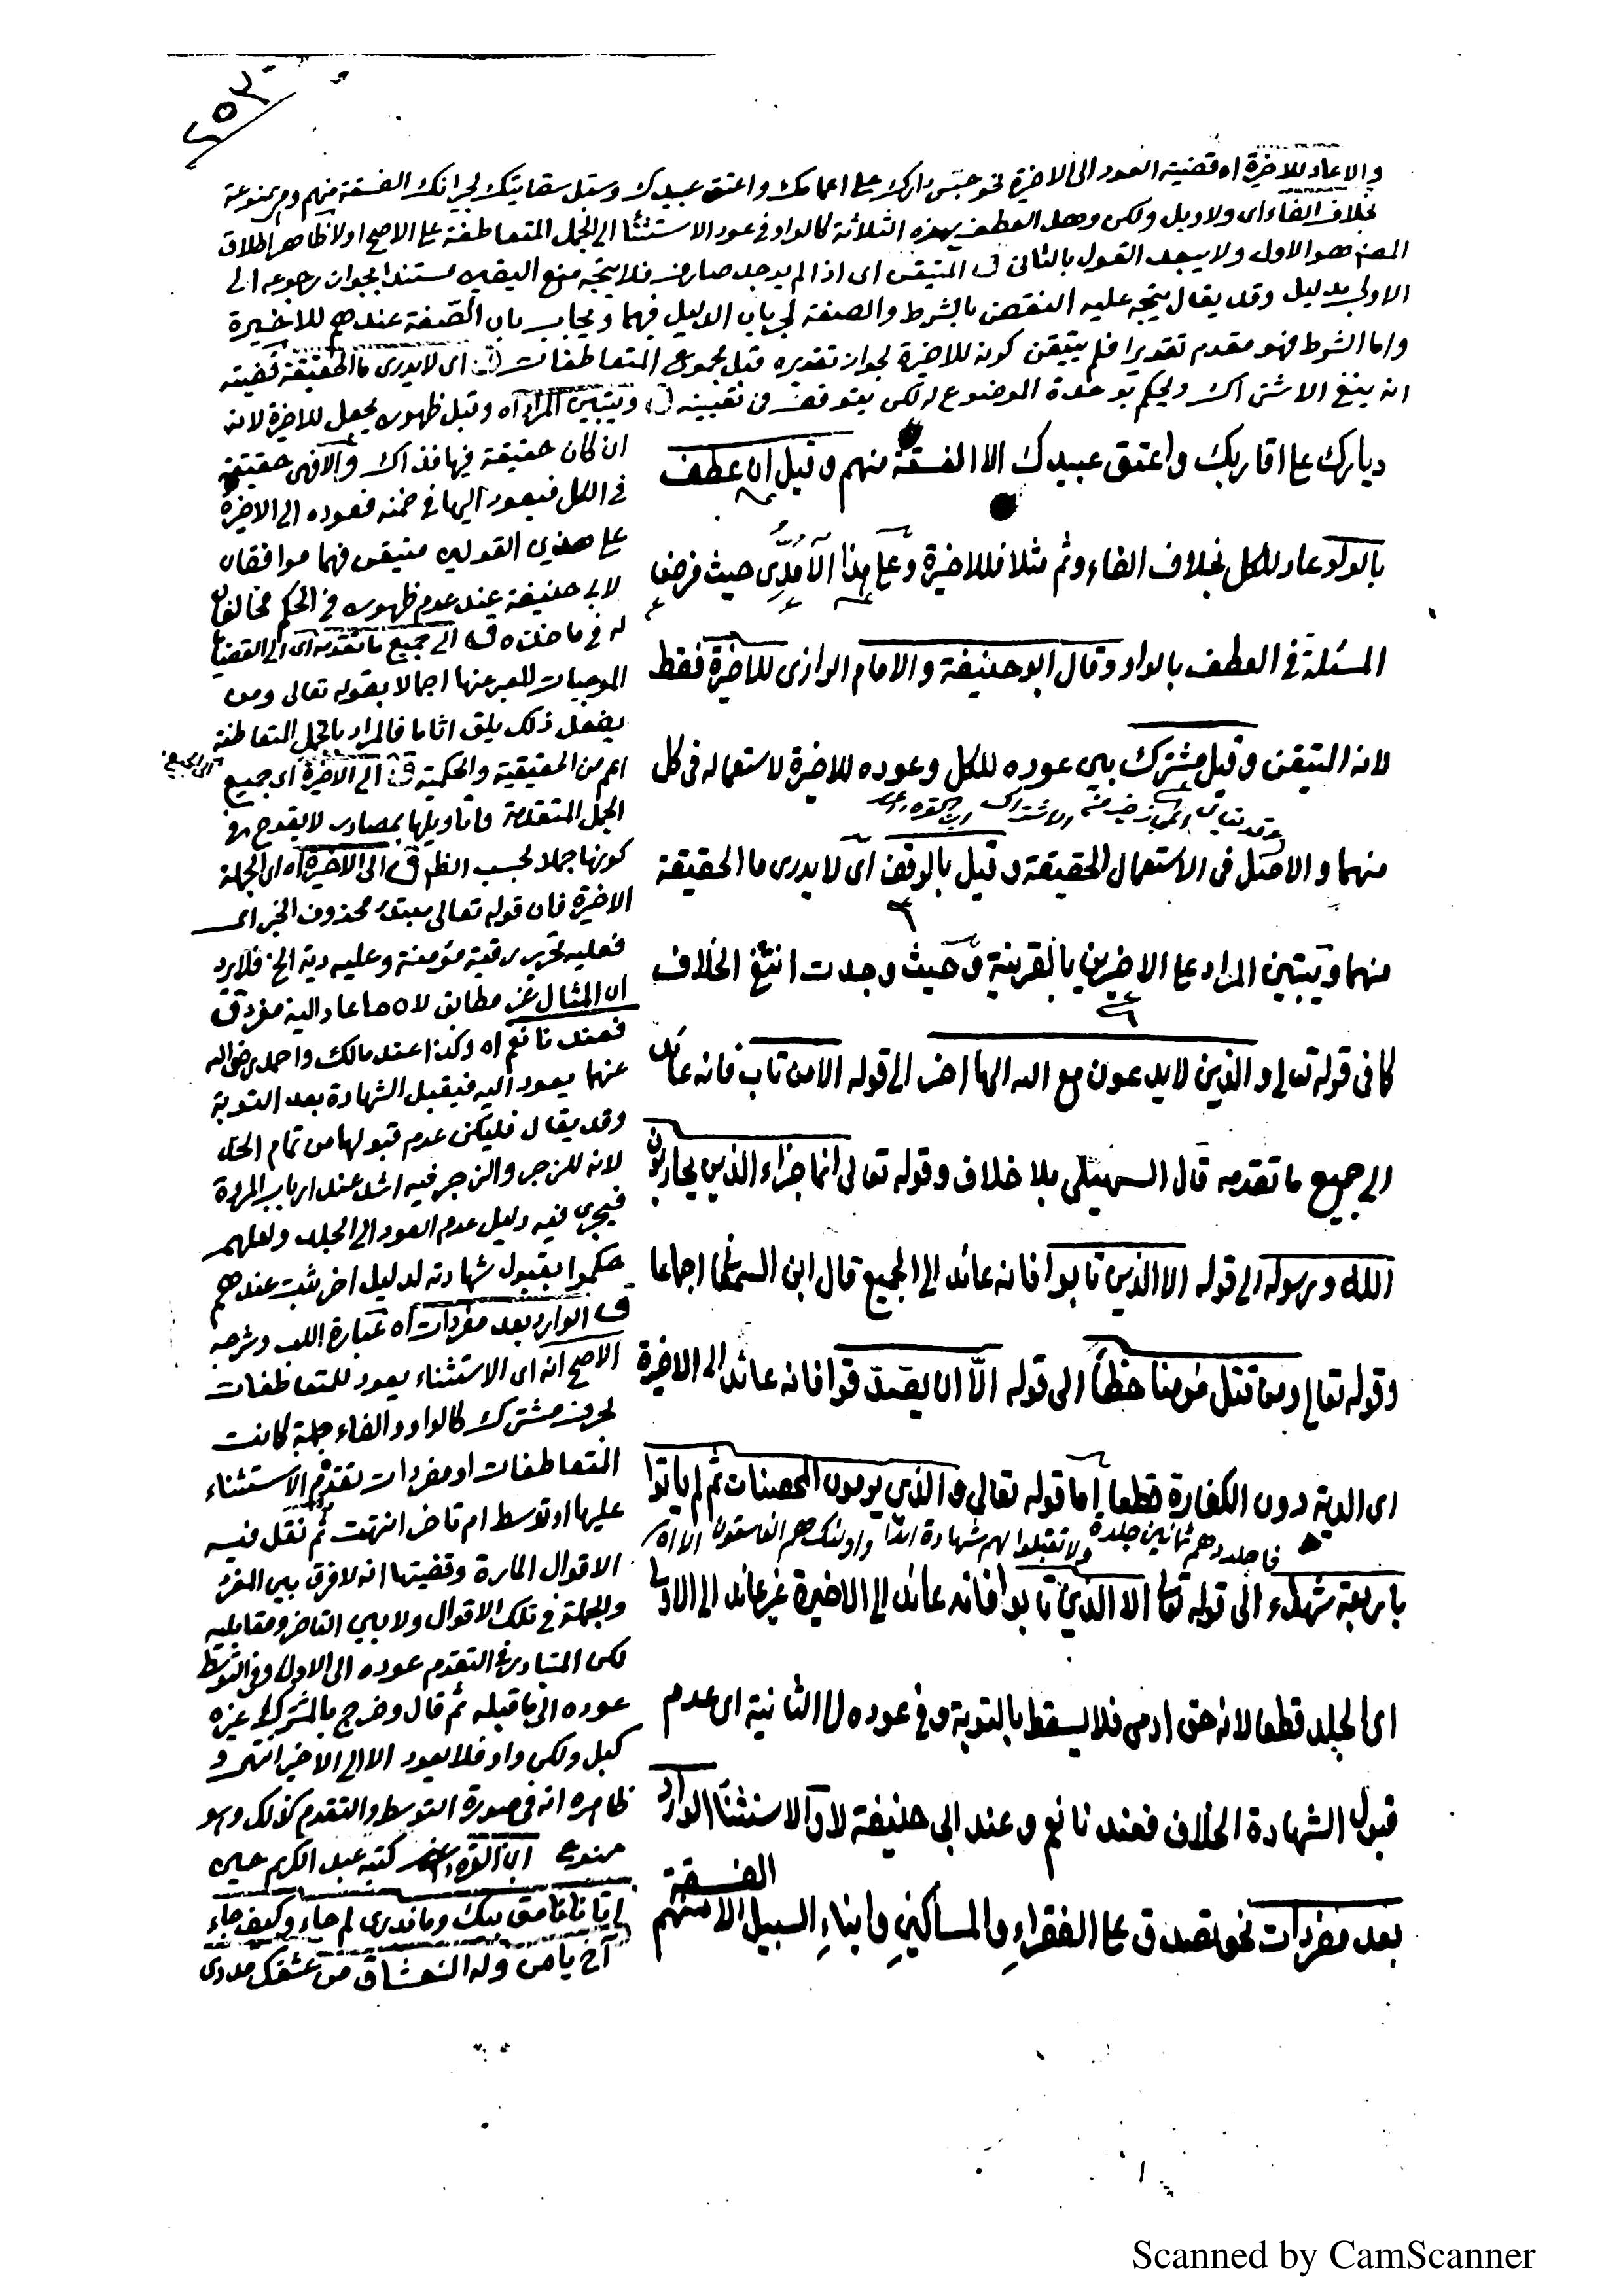 ٢٥٣
والا عاد للاخيرة اه قضيته العود الى الاخيرة نحو حبس دارك على اعمامك واعتق عبيدك وسبل سقايتك لجيرانك الفسقة منهم وهي ممنوعة
بخلاف الفاء اى ولا وبل ولكن وهل العطف بهذه الثلاثة كالواو فى عود الاستثنا الى الجمل المتعاطفة على الاصح او لا ظاهر اطلاق
المصنف هو الاول ولا يبعد القول بالثانى ق المتيقن اى اذا لم يوجد صارف فلا يتجه منع اليقين مستندا بجواز رجوعه الى
الاولى بدليل وقد يقال يتجه عليه النقض بالشرط والصفة لجريان الدليل فيهما ويجاب بان الصفة عندهم للاخيرة
واما الشرط فهو مقدم تقديرا فلم يتيقن كونه للاخيرة لجواز تقديره قبل مجموع المتعاطفات ق اى لا يدرى ما الحقيقة قضيته
انه ينفى الاشتراك ويحكم بوحدة الموضوع له لكن يتوقف فى تعيينه ق ويتبين المراد اه وقبل ظهوره يحمل للاخيرة لانه
دیارك على اقاربك واعتق عبيدك الا الفسقة منهم وقيل ان عطف
بالواو عاد للكل بخلاف الفاء وثم مثلا فللاخيرة وعلى هذا الآمدى حيث فرض
المسئلة فى العطف بالواو وقال ابو حنيفة والامام الرازى للاخيرة فقط
لانه المتيقن وقيل مشترك بين عوده للكل وعوده للاخيرة لاستعماله فى كل
وقد يقال المجاز خير من الاشتراك
منهما والاصل فى الاستعمال الحقيقة وقيل بالوقف اى لا يدرى ما الحقيقة
منهما ويتبين المراد على الاخيرين بالقرينة وحيث وجدت انتفى الخلاف
كما فى قوله تعالى والذين لا يدعون مع الله الها اخر الى قوله الا من تاب فانه عائد
الى جميع ما تقدمه قال السهيلى بلا خلاف وقوله تعالى انما جزاء الذين يحاربون
الله ورسوله الى قوله الا الذين تابوا فانه عائد الى الجميع قال ابن السمعانى اجماعا
وقوله تعالى ومن قتل مؤمنا خطأ الى قوله الا ان يصدقوا فانه عائد الى الاخيرة
اى الدية دون الكفارة قطعا اما قوله تعالى والذين يرمون المحصنات ثم لم ياتوا
فاجلدوهم ثمانين جلدة ولا تقبلوا لهم شهادة ابدا واولئك هم الفاسقون الا اه
باربعة شهداء الى قوله تعالى الا الذين تابوا فانه عائد الى الاخيرة غير عائد الى الاولى
اى الجلد قطعا لانه حق ادمى فلا يسقط بالتوبة وفى عوده الى الثانية اى عدم
قبول الشهادة الخلاف فعندنا نعم وعند ابى حنيفة لا والاستثنا الوارد
الفسقة
بعد مفردات نحو تصدق على الفقراءِ والمساكينِ وابناءِ السبيل الا منهم
ان كان حقيقة فيها فذاك والا فهى حقيقة
فى الكل فيعود اليها فى ضمنه فعوده الى الاخيرة
على هذين القولين متيقن فهما موافقان
لابى حنيفة عند عدم ظهوره فى الحكم مخالفان
له فى ماخذه ق الى جميع ما تقدمه اى الى القضايا
الموجبات المعبر عنها اجمالا بقوله تعالى ومن
يفعل ذلك يلق اثاما فالمراد بالجمل المتعاطفة
اعم من الحقيقية والحكمية ق الى الاخيرة اى جميع
الجمل المتقدمة وتاويلها بمصادر لا يقدح فى
كونها جملا بحسب الظ ق الى الاخيرة اه اى الجملة
الاخيرة فان قوله تعالى مبتدء محذوف الخبر اى
فعليه تحرير رقبة مؤمنة وعليه دية الخ فلا يرد
ان المثال غير مطابق لان ما عاد اليه مفرد ق
فعندنا نعم اه وكذا عند مالك واحمد رضى الله
عنهما يعود اليه فيقبل الشهادة بعد التوبة
وقد يقال فليكن عدم قبولها من تمام الحد
لانه للزجر والزجر فيه اشد عند ارباب المروة
فيجرى فيه دليل عدم العود الى الجلد ولعلهم
حكموا بقبول شهادته لدليل اخر ثبت عندهم
ق الوارد بعد مفردات اه عبارة اللب وشرحه
الاصح انه اى الاستثناء يعود للمتعاطفات
بحرف مشترك كالواو والفاء جملة كانت
المتعاطفات او مفردات تقدم الاستثناء
عليها او توسط ام تاخر انتهت ثم نقل فيه
الاقوال المارة وقضيتها انه لا فرق بين المفرد
والجملة فى تلك الاقوال ولا بين التاخر ومقابليه
لكن المتبادر فى التقدم عوده الى الاول وفى التوسط
عوده الى ما قبله ثم قال وخرج بالمشترك غيره
كبل ولكن واو فلا يعود الا الى الاخير انتهى و
ظاهره انه فى صورة التوسط والتقدم كذلك وهو
ممنوع ابن القره داغى كتبه عبد الكريم حين
اتانا وما ندرى لم جاء وكيف جاء
آخ يا من وله العشاق من عشقك مددى